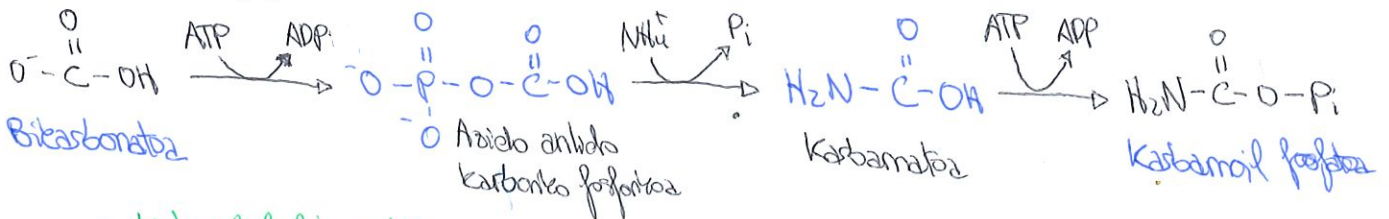 O⁻-C(=O)-OH ATP ADP ⁻O-P(=O)(O⁻)-O-C(=O)-OH NH₄⁺ Pi H₂N-C(=O)-OH ATP ADP H₂N-C(=O)-O-Pi
Bikarbonatoa
Azido anhido
karboniko fosforikoa
Karbamatoa
Karbamoil fosfatoa